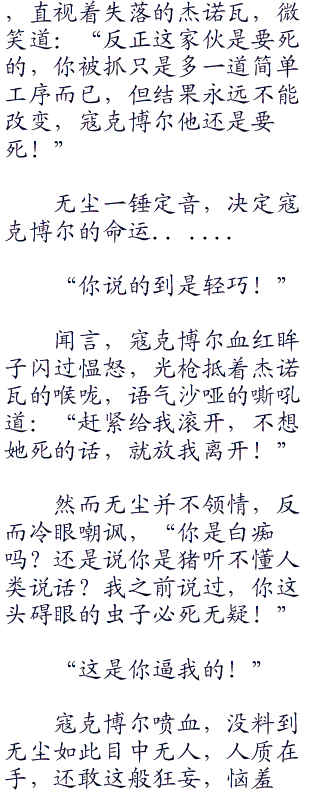 ，直视着失落的杰诺瓦，微
笑道：“反正这家伙是要死
的，你被抓只是多一道简单
工序而已，但结果永远不能
改变，寇克博尔他还是要
死！”
无尘一锤定音，决定寇
克博尔的命运．．．．．．
“你说的到是轻巧！”
闻言，寇克博尔血红眸
子闪过愠怒，光枪抵着杰诺
瓦的喉咙，语气沙哑的嘶吼
道：“赶紧给我滚开，不想
她死的话，就放我离开！”
然而无尘并不领情，反
而冷眼嘲讽，“你是白痴
吗？还是说你是猪听不懂人
类说话？我之前说过，你这
头碍眼的虫子必死无疑！”
“这是你逼我的！”
寇克博尔喷血，没料到
无尘如此目中无人，人质在
手，还敢这般狂妄，恼羞